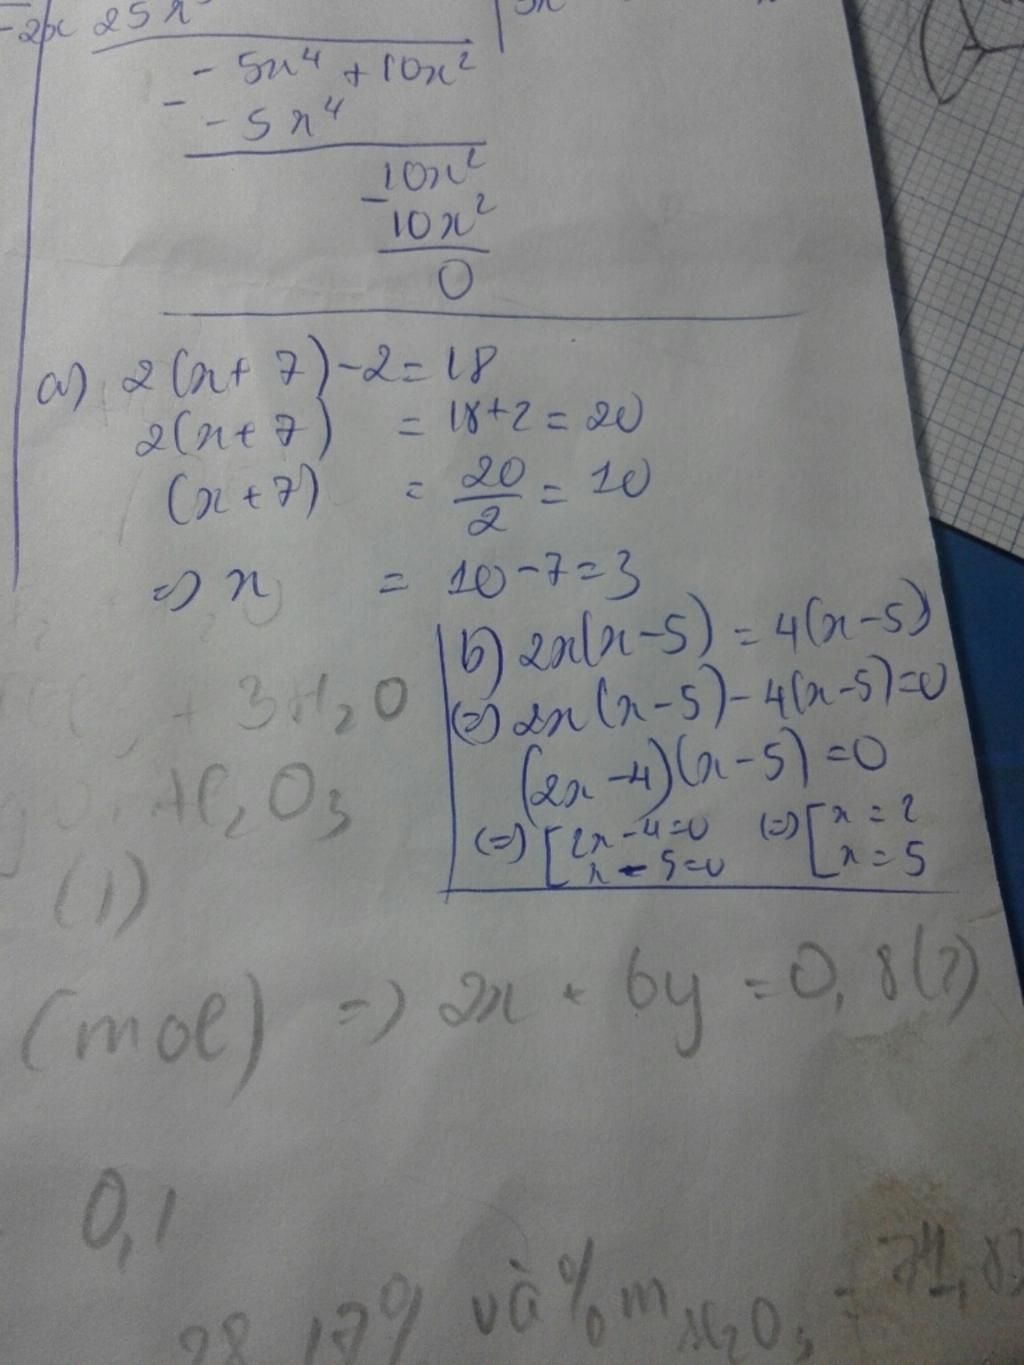 -2x 25x
- 5x⁴ + 10x²
- - 5x⁴
10x²
- 10x²
0
a) 2(x+7)-2=18
2(x+7) = 18+2=20
(x+7) = 20/2 = 10
=> x = 10-7=3
b) 2x(x-5) = 4(x-5)
(=) 2x(x-5)-4(x-5)=0
(2x-4)(x-5)=0
(=) [2x-4=0 (=) [x=2
x-5=0 x=5
+ 3H₂O
Al₂O₃
(1)
(mol) => 2x + 6y = 0,8(2)
0,1
17% và %m Al₂O₃ =